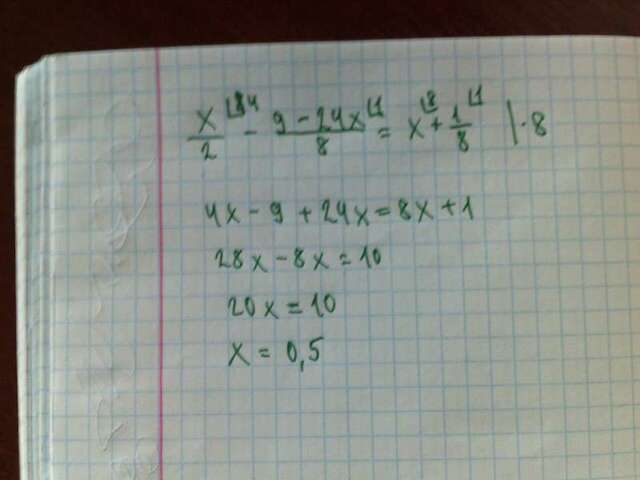 x/2 ⌊4 - 9 - 24x/8 ⌊1 = x ⌊8 + 1/8 ⌊1 | · 8
4x - 9 + 24x = 8x + 1
28x - 8x = 10
20x = 10
x = 0,5